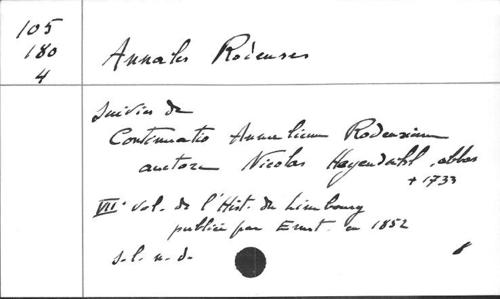 105
180
4
Annales Rodenses
suivies de
Continuatio Annalium Rodensium
auctore Nicolas Heyendahl, abbas
+ 1733
VIIe vol. de l'Hist. du Limbourg
publiée par Ernst. en 1852
s.l. n.d.
8